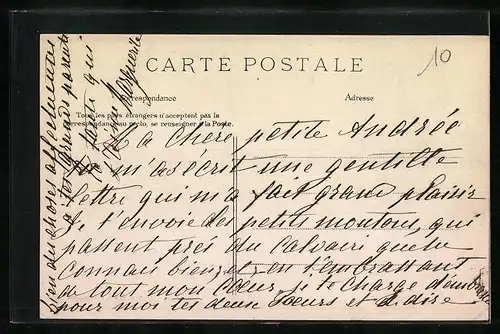 10
CARTE POSTALE
Correspondance
Adresse
Tous les pays étrangers n'acceptent pas la
correspondance au recto, se renseigner à la Poste.
Ma Chère petite Andrée
Tu m'as écrit une gentille
lettre qui m'a fait grand plaisir
Je t'envoie des petit moutons qui
passent près du calvaire que tu
connais bien, et en t'embrassant
de tout mon Cœur, je te charge d'embrasser
pour moi tes deux Sœurs et de dire
bien des choses affectueuses
à tes Grands parents
ta tante qui
t'aime Marguerite